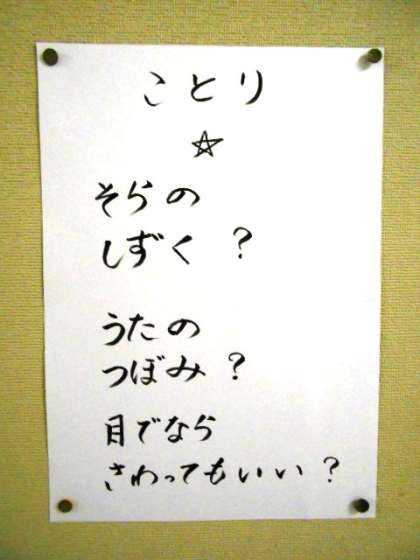 ことり
☆
そらの
しずく?
うたの
つぼみ?
目でなら
さわってもいい?